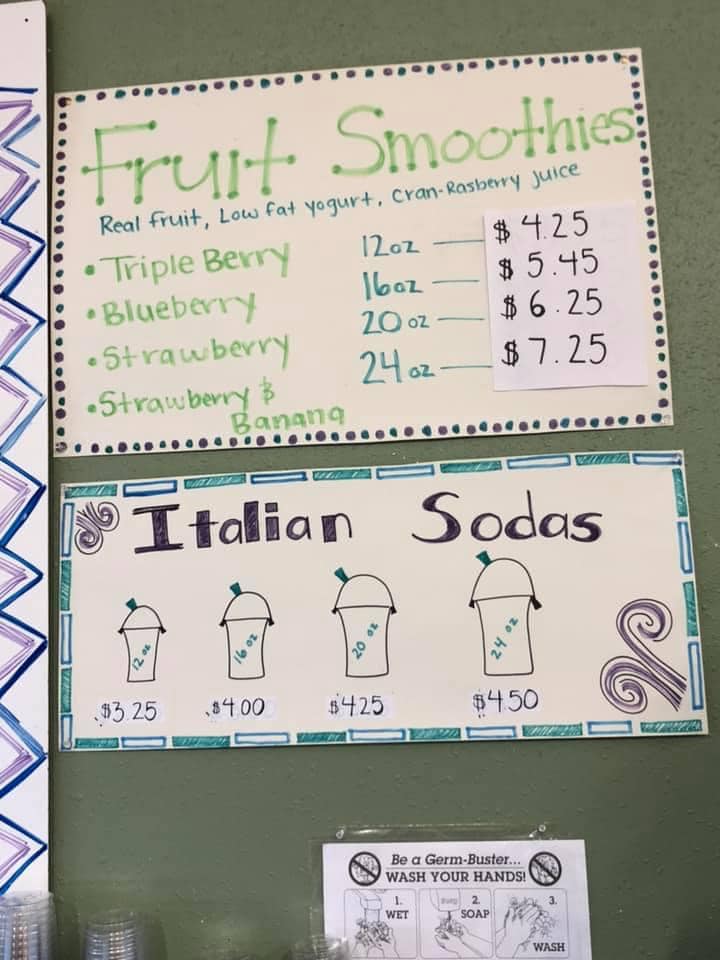 Fruit Smoothies
Real fruit, Low fat yogurt, Cran-Rasberry juice
• Triple Berry
• Blueberry
• Strawberry
• Strawberry &
Banana
12oz — $ 4.25
16oz — $ 5.45
20 oz — $ 6.25
24 oz — $ 7.25
Italian Sodas
12 oz
16 oz
20 oz
24 oz
$3.25
$4.00
$4.25
$4.50
Be a Germ-Buster...
WASH YOUR HANDS!
1.
WET
2.
SOAP
3.
WASH